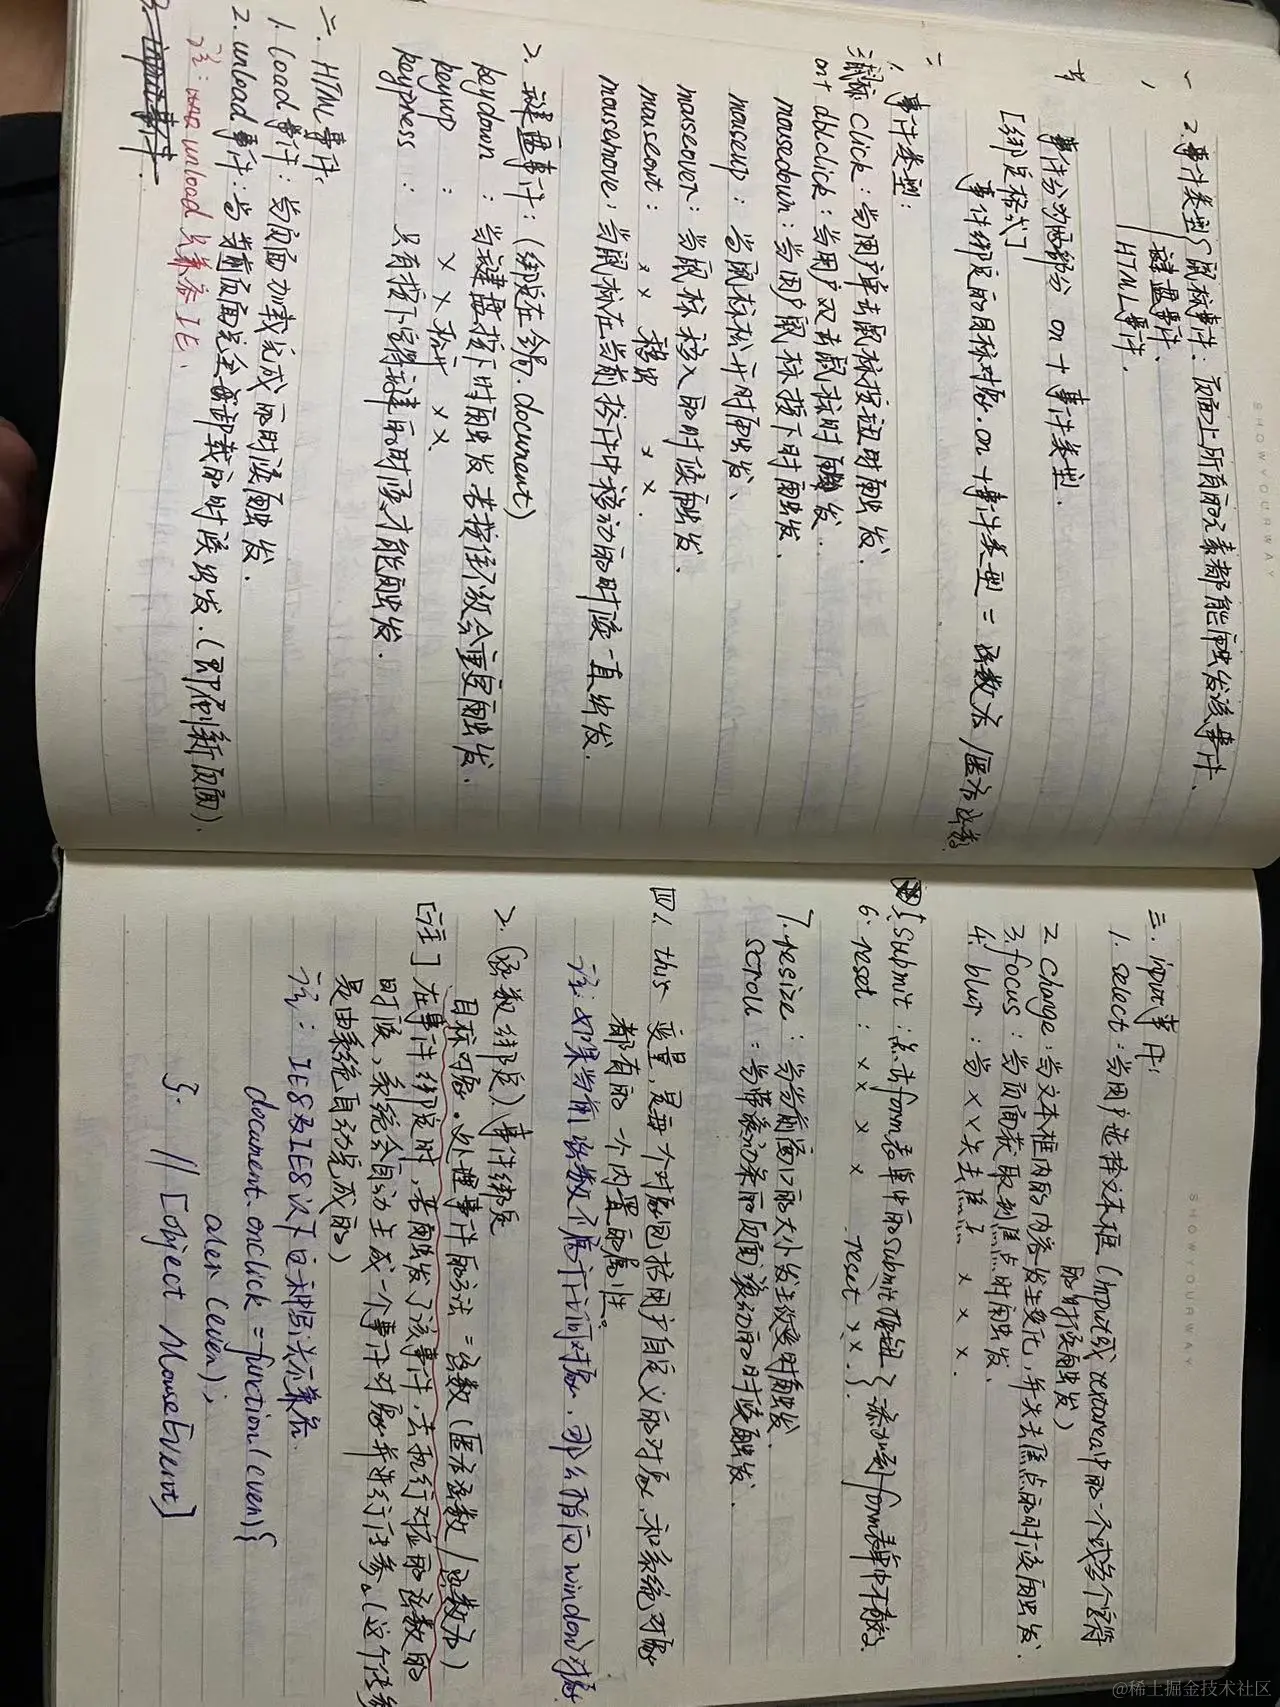 2.事件类型 鼠标事件:页面上所有的元素都能触发该事件、
键盘事件、
HTML事件.
事件分为两部分 on + 事件类型.
[绑定格式]
事件绑定的目标对象.on+事件类型 = 函数名/匿名函数
二
1. 事件类型:
click:当用户单击鼠标按钮时触发.
dblclick:当用户双击鼠标时触发.
mousedown:当用户鼠标按下时触发、
mouseup:当鼠标松开时触发、
mouseover:当鼠标移入的时候触发、
mouseout: × × 移出 × × .
mousemove:当鼠标在当前控件中移动的时候一直出发.
2. 键盘事件:(绑定在全局.document)
keydown:当键盘按下时触发 若按住不放会重复触发.
keyup : × × 松开 × ×.
keypress : 只有按下字符键的时候才能触发.
二. HTML事件:
1. load事件:当页面加载完成的时候触发.
2. unload事件:当当前页面完全卸载的时候出发.(即刷新页面).
注: unload只兼容IE.
3. input事件
SHOWYOURWAY
三. input事件:
1. select:当用户选择文本框(input或textarea中的一个或多个字符
的时候触发)
2. change:当文本框内的内容发生变化,并失去焦点的时候触发.
3. focus:当页面获取到焦点时触发、
4. blur:当××失去焦点 × × ×
submit:点击form表单中的submit按钮 {添加到form表单中才有效}.
6. reset : × × × × reset × × .
7. resize:当当前窗口的大小发生改变时触发.
scroll:当带滚动条的页面滚动的时候触发.
四1. this 变量,是每个对象包括用户自定义的对象,和系统对象
都有的一个内置的属性。
注:如果当前函数不属于任何对象,那么指向window对象.
2. (函数绑定)事件绑定
目标对象.处理事件的方法 = 函数(匿名函数/函数名)
[注]在事件绑定时,若触发了该事件,去执行对应的函数的
时候,系统会自动生成一个事件对象并进行传参。(这个传参
是由系统自动完成的)
注:IE8及IE8以下这种写法不兼容.
document.onclick = function(even){
aler(even);
}. // [object MouseEvent]
SHOWYOURWAY
@稀土掘金技术社区